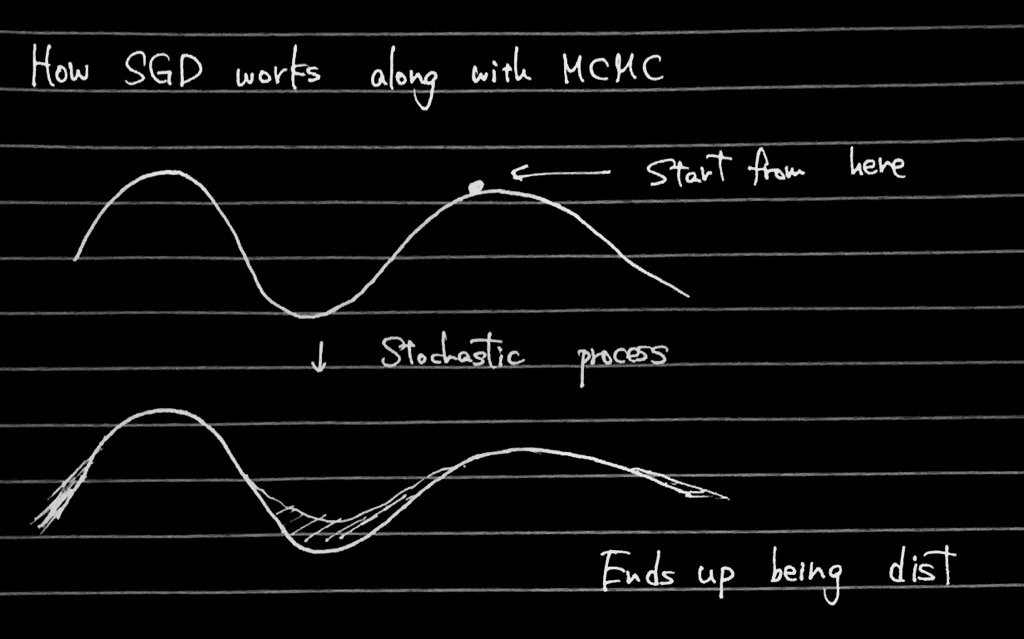 How SGD works along with MCMC
Start from here
Stochastic process
Ends up being dist